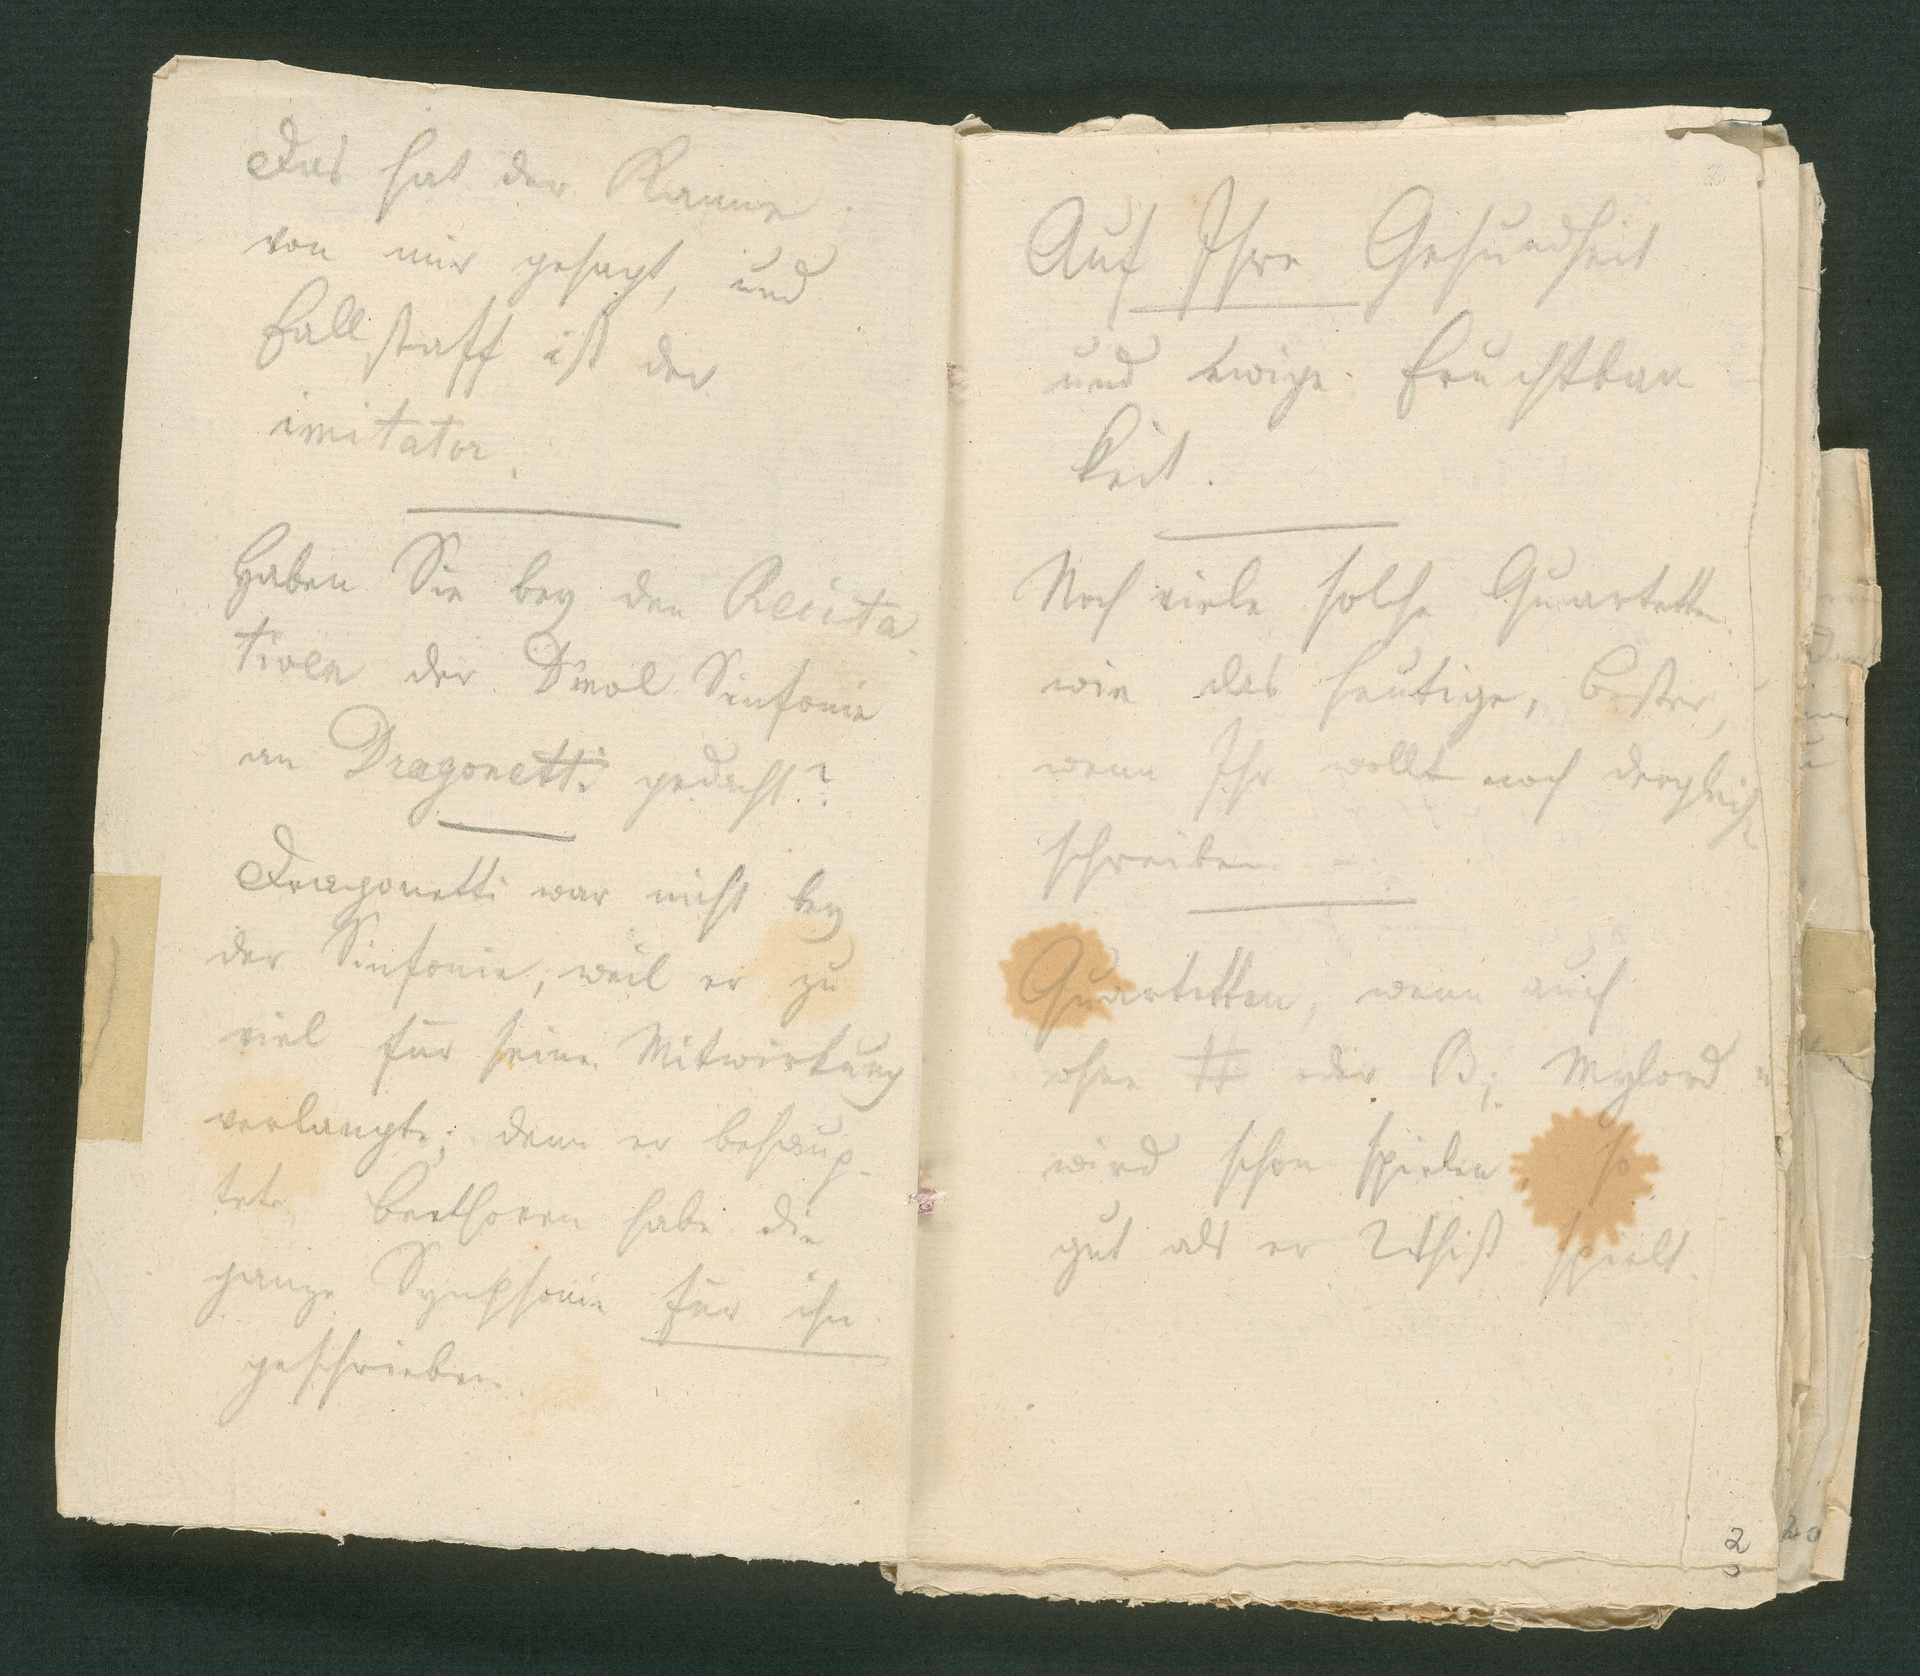 Das hat der Kanne
von mir gesagt, und
Fallstaff ist der
imitator.
Haben Sie bey den Recita
tiven der Dmol Sinfonie
an Dragonetti gedacht?
Dragonetti war nicht bey
der Sinfonie, weil er zu
viel für seine Mitwirkung
verlangte; denn er behaup-
tete, Beethoven habe die
ganze Symphonie für ihn
geschrieben.
Auf Ihre Gesundheit
und ewige Fruchtbar
keit.
Noch viele solche Quartette
wie das heutige, Bester,
wenn Ihr wollt noch dergleich
schreiben
Quartetten, wenn auch
ohne # oder B; Mylord
wird schon spielen, so
gut als er Whist spielt.
2